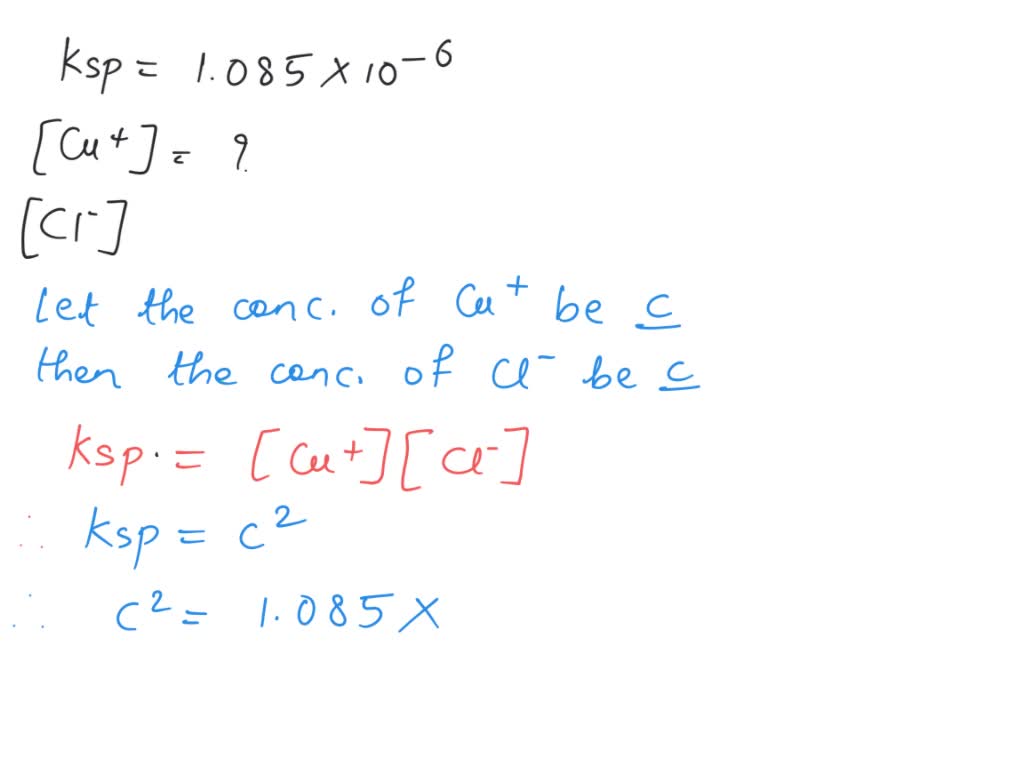 Ksp = 1.085 × 10⁻⁶
[Cu⁺] = ?
[Cl⁻]
Let the conc. of Cu⁺ be c
then the conc. of Cl⁻ be c
Ksp. = [Cu⁺][Cl⁻]
∴ Ksp = c²
∴ c² = 1.085 ×